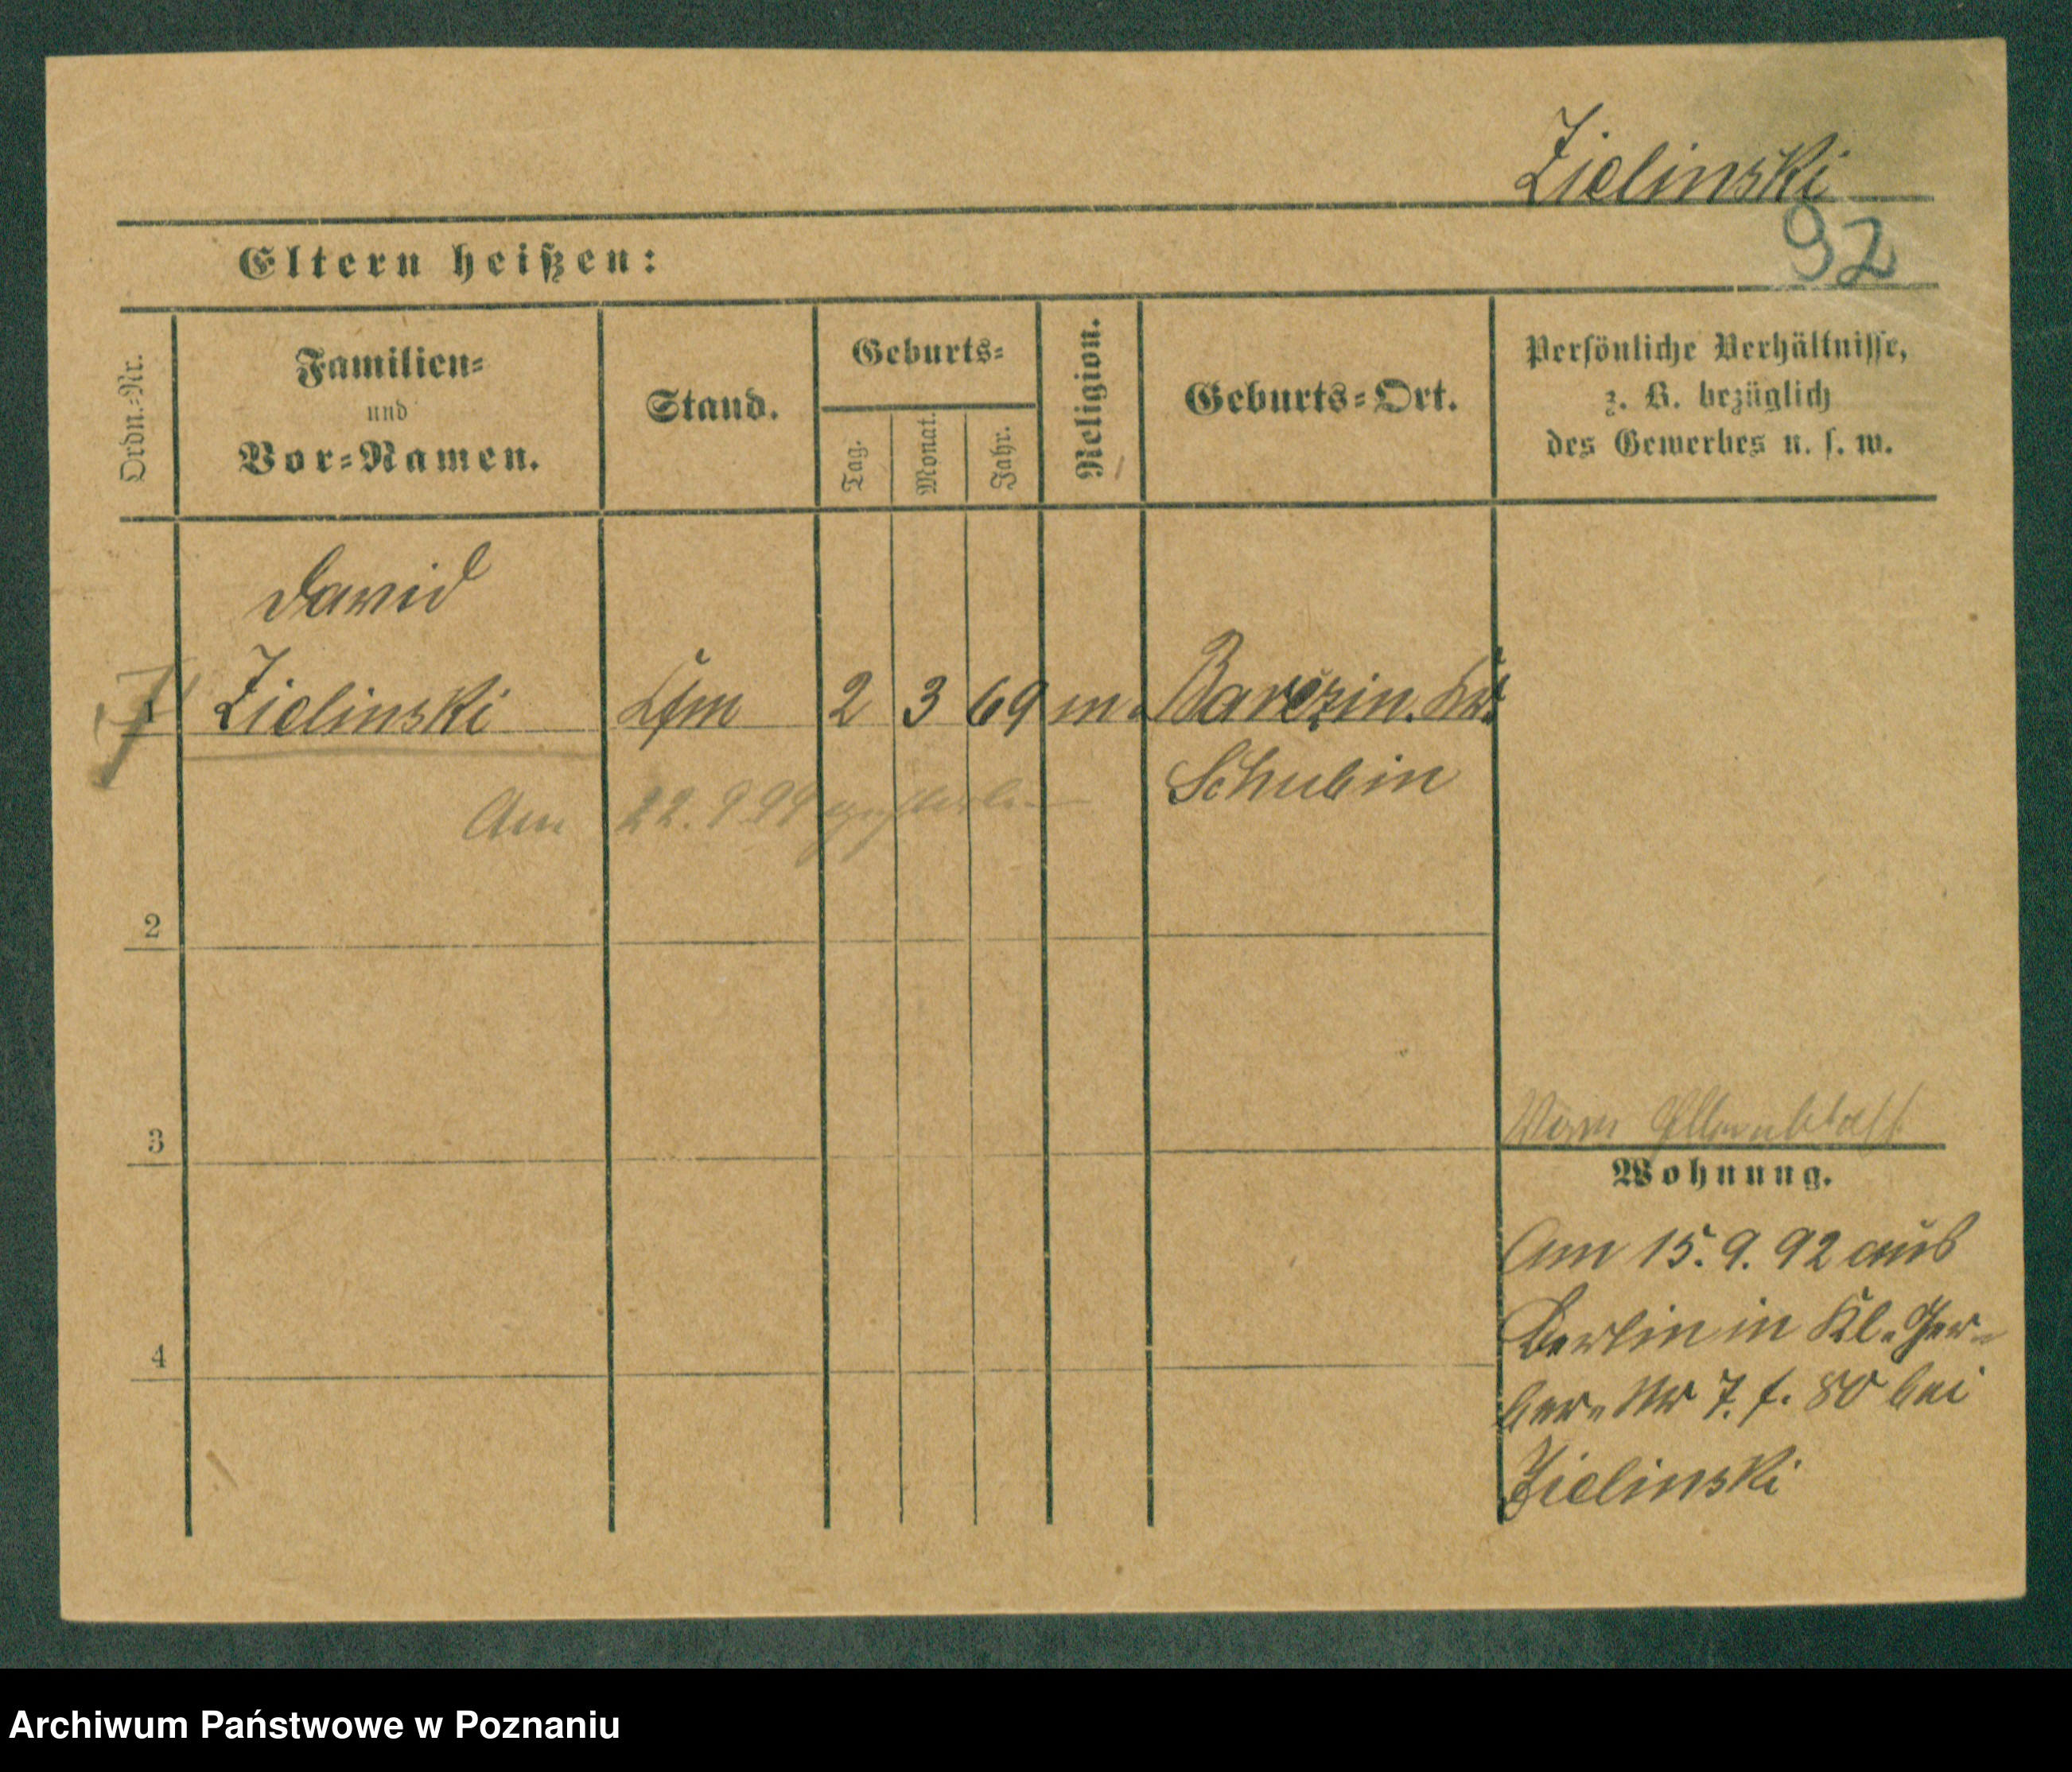 Zielinski
92
Eltern heißen:
Ordn.-Nr.
Familien-
und
Vor-Namen.
Stand.
Geburts-
Tag.
Monat.
Jahr.
Religion.
Geburts-Ort.
Persönliche Verhältnisse,
z. B. bezüglich
des Gewerbes u. s. w.
David
1 Zielinski Kfm 2 3 69 m. Barczin. Kr.
Schubin
Am 22. 9 99 gestorben
2
3
4
Wohnung.
Am 15. 9. 92 aus
Berlin in Kl. Ger-
ber. Nr 7. f. 80 bei
Zielinski
Archiwum Państwowe w Poznaniu